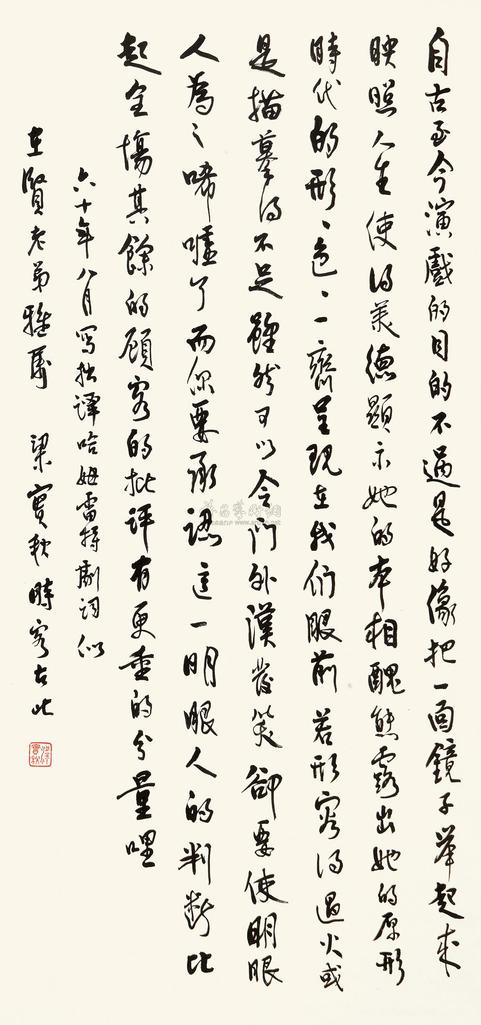 自古至今演戲的目的不過是好像把一面鏡子舉起來
映照人生使得美德顯示她的本相醜態露出她的原形
時代的形、色、一齊呈現在我們眼前若形容得過火或
是描摹得不足雖然可以令門外漢發笑卻要使明眼
人為之唏噓了而你要承認這一明眼人的判斷比
起全場其餘的顧客的批評有更重的分量哩
六十年八月寫拙譯哈姆雷特劇詞似
在賢老弟雅屬 梁實秋時客台北